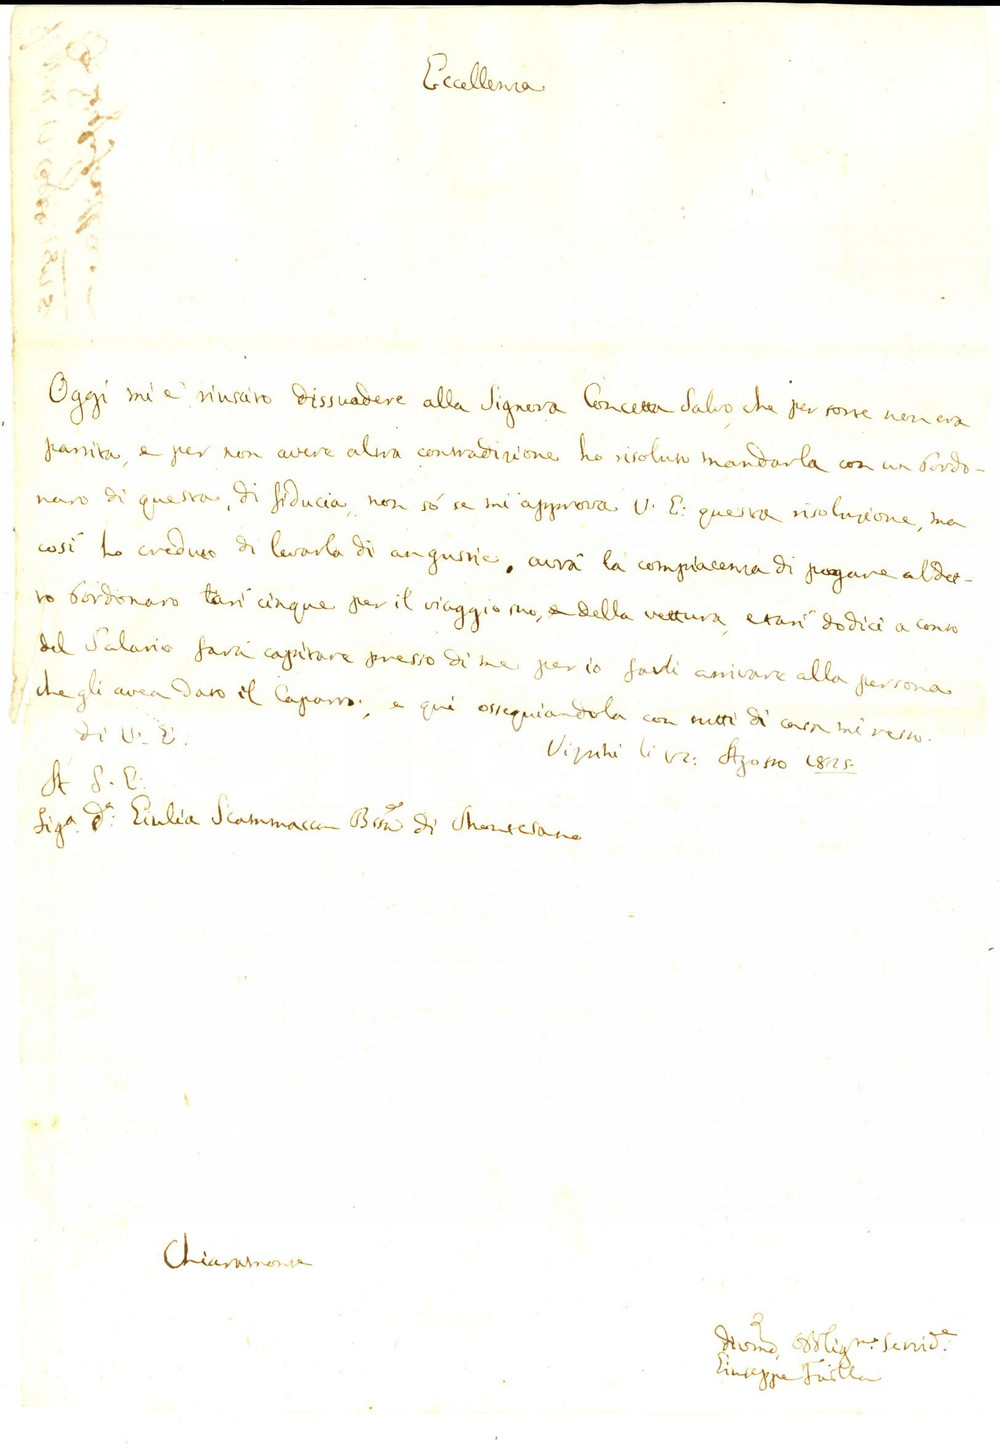 Eccellenza
Oggi mi è riuscito dissuadere alla Signora Concetta Salvo, che per sorte non era
partita, e per non avere altra contradizione ho risoluto mandarla con un bordo-
naro di questa, di fiducia, non só se mi approva V. E: questa risoluzione, ma
così ho creduto di levarla di angustie, avrà la compiacenza di pagare al det-
to bordonaro tarì cinque per il viaggio suo, e della vettura, e tarì dodici a conto
del Salario farà capitare presso di me per io farli arrivare alla persona
che gli avea dato il Caparro; e qui ossequiandola con tutti di casa mi resto.
di V. E.
Vizzini li 12: Agosto 1825
A S. E:
Sig.a D.a: Giulia Scammacca Bssa di
Chiaramonte
Obligmo: Servid.e
Giuseppe